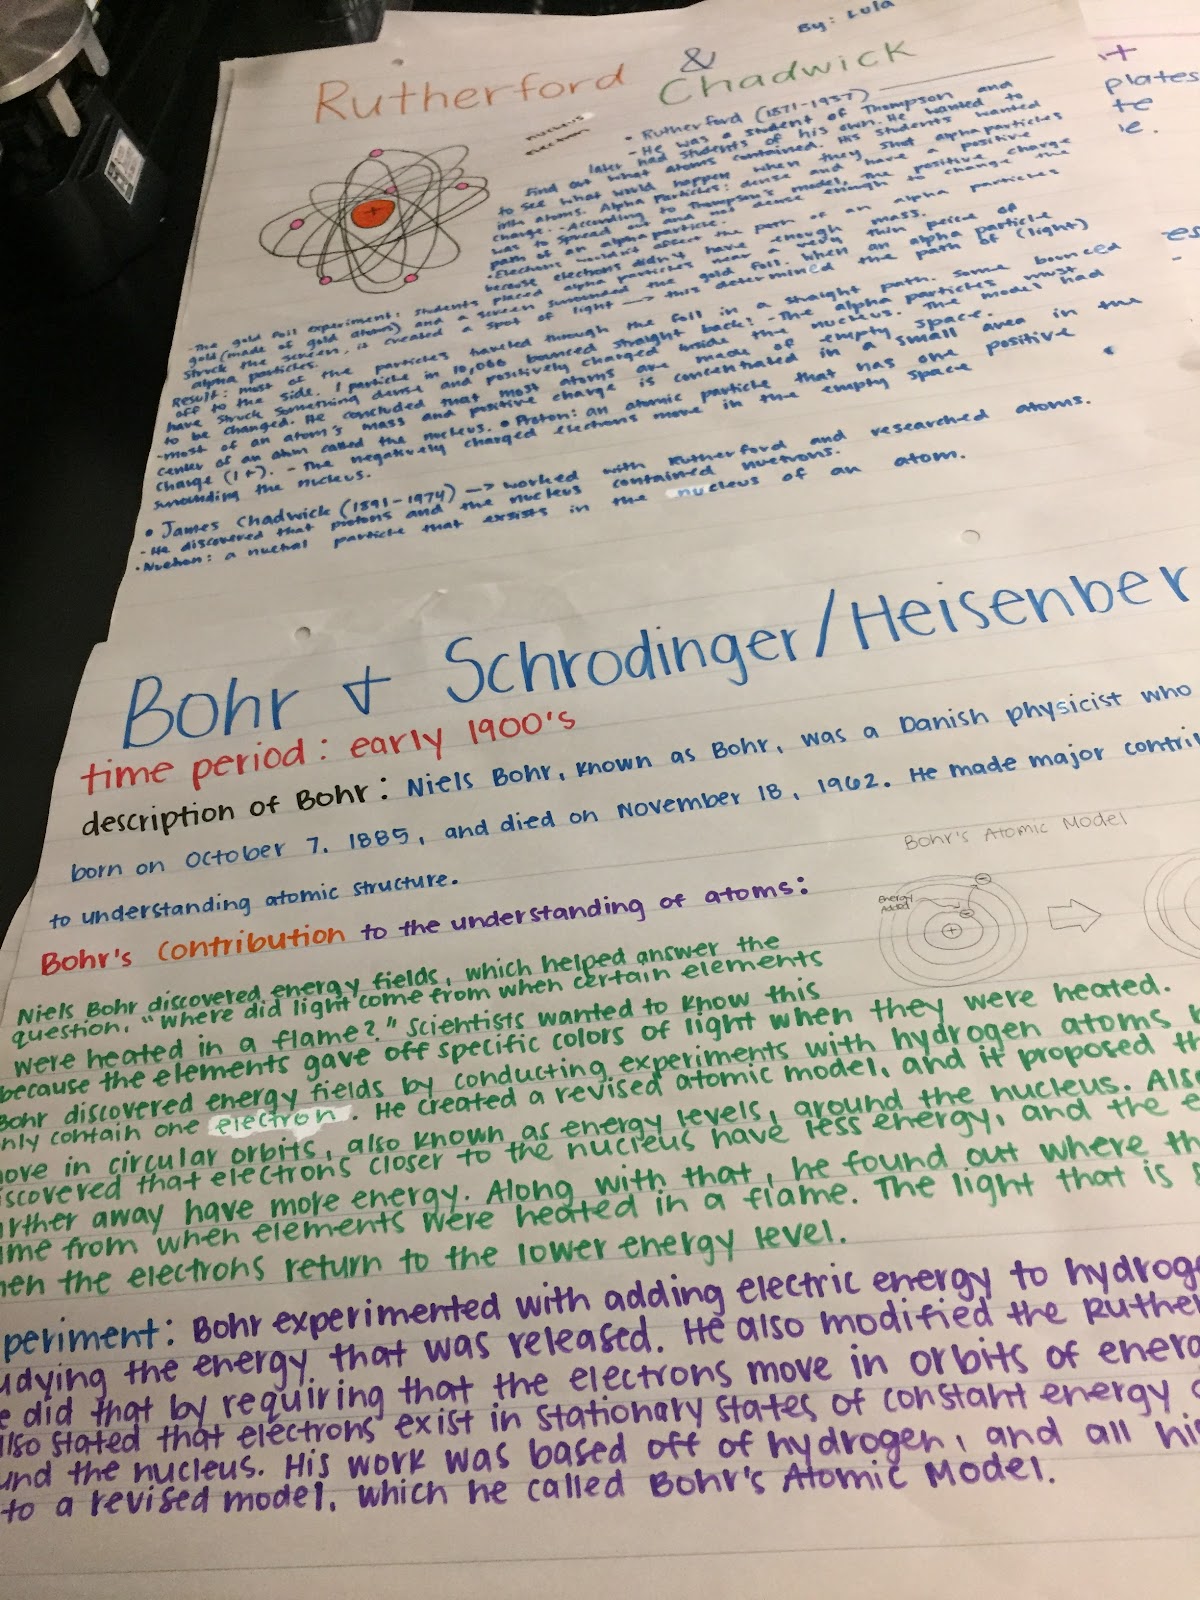 By: Lula
Rutherford & Chadwick
nucleus
electron
• Rutherford (1871-1937)
- He was a student of Thompson and
later had students of his own. He wanted to
find out what atoms contained. His students wanted
to see what would happen when they shot alpha particles
into atoms. Alpha Particles: dense and have a positive
charge. - According to Thompson's model, the positive charge
was to spread out and not dense enough to change the
path of an alpha particle.
• Electrons wouldn't affect the path of an alpha particles
because electrons didn't have enough mass.
- The gold foil experiment: students placed alpha particles near a very thin peice of
gold (made of gold atoms) and a screen surrounded the gold foil. When an alpha particle
struck the screen, it created a spot of light → this determined the path of (light)
alpha particles.
Result: most of the particles traveled through the foil in a straight path. Some bounced
off to the side. 1 particle in 10,000 bounced straight back! - The alpha particles must
have struck something dense and positively charged inside the nucleus. The model had
to be changed. He concluded that most atoms are made of empty space.
- most of an atom's mass and positive charge is concentrated in a small area in the
center of an atom called the nucleus. • Proton: an atomic particle that has one positive
charge (1+). - The negatively charged electrons move in the empty space
surrounding the nucleus.
• James Chadwick (1891-1974) → worked with Rutherford and researched atoms.
- He discovered that protons and the nucleus contained nuetrons.
• Nuetron: a nuetral particle that exsists in the nucleus of an atom.
plates
te
ie.
es
Bohr & Schrodinger/Heisenber
time period: early 1900's
description of Bohr: Niels Bohr, known as Bohr, was a Danish physicist who
born on October 7, 1885, and died on November 18, 1962. He made major contri
to understanding atomic structure.
Bohr's Atomic Model
Energy
Added
Bohr's contribution to the understanding of atoms:
Niels Bohr discovered energy fields, which helped answer the
question, "where did light come from when certain elements
were heated in a flame?" Scientists wanted to know this
because the elements gave off specific colors of light when they were heated.
Bohr discovered energy fields by conducting experiments with hydrogen atoms
nly contain one electron. He created a revised atomic model, and it proposed th
ove in circular orbits, also known as energy levels, around the nucleus. Also
iscovered that electrons closer to the nucleus have less energy, and the e
rther away have more energy. Along with that, he found out where th
ame from when elements were heated in a flame. The light that is
hen the electrons return to the lower energy level.
periment: Bohr experimented with adding electric energy to hydroge
udying the energy that was released. He also modified the Ruther
e did that by requiring that the electrons move in orbits of energ
lso stated that electrons exist in stationary states of constant energy
und the nucleus. His work was based off of hydrogen, and all hi
to a revised model, which he called Bohr's Atomic Model.